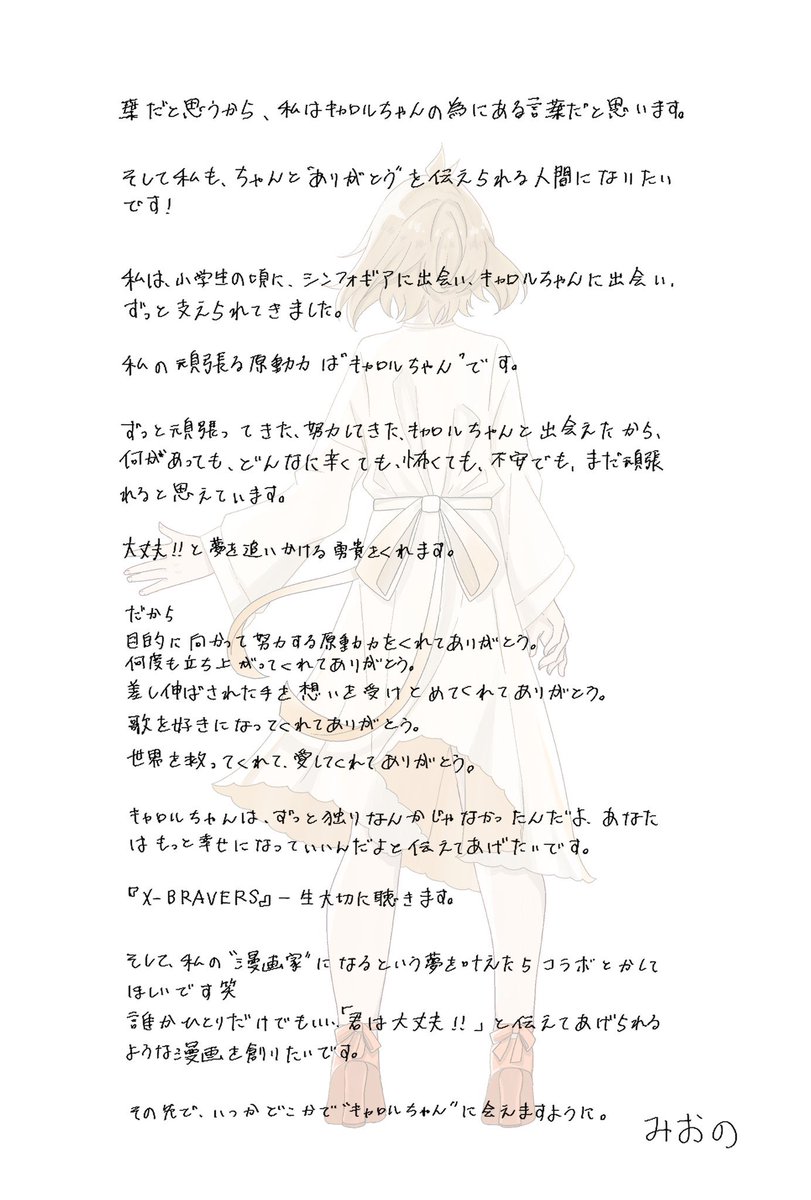 葉だと思うから、私はキャロルちゃんの為にある言葉だと思います。
そして私も、ちゃんと"ありがとう"を伝えられる人間になりたい
です!
私は、小学生の頃に、シンフォギアに出会い、キャロルちゃんに出会い、
ずっと支えられてきました。
私の頑張る原動力は"キャロルちゃん"です。
ずっと頑張ってきた、努力してきた、キャロルちゃんと出会えたから、
何があっても、どんなに辛くても、怖くても、不安でも、まだ頑張
れると思えています。
大丈夫!!と夢を追いかける勇貴をくれます。
だから
目的に向かって努力する原動力をくれてありがとう。
何度も立ち上がってくれてありがとう。
差し伸ばされた手を想いを受けとめてくれてありがとう。
歌を好きになってくれてありがとう。
世界を救ってくれて、愛してくれてありがとう。
キャロルちゃんは、ずっと独りなんかじゃなかったんだよ、あなた
はもっと幸せになっていいんだよと伝えてあげたいです。
『X-BRAVERS』一生大切に聴きます。
そして、私の"漫画家"になるという夢を叶えたらコラボとかして
ほしいです笑
誰かひとりだけでもいい、「君は大丈夫!!」と伝えてあげられる
ような漫画を創りたいです。
その先で、いつかどこかで"キャロルちゃん"に会えますように。
みおの